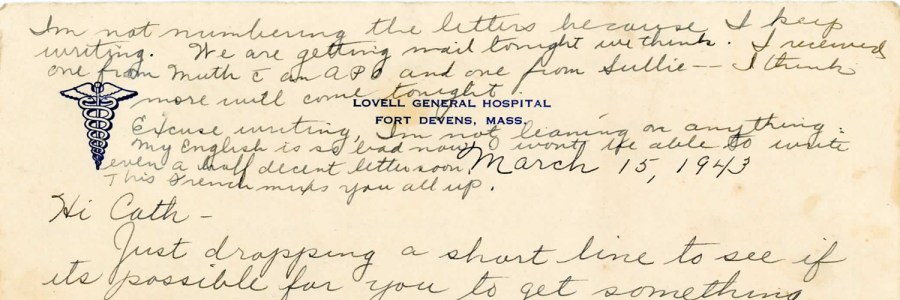 Im not numbering the letters because I keep
writing. We are getting mail tonight we think. I received
one from Muth c an APO and one from Sullie -- I think
more will come tonight.
LOVELL GENERAL HOSPITAL
FORT DEVENS, MASS.
Excuse writing, Im not leaning on anything.
My English is so bad now I wont be able to write
even a half decent letter soon.
March 15, 1943
This French mixes you all up.
Hi Cath -
Just dropping a short line to see if
its possible for you to get something